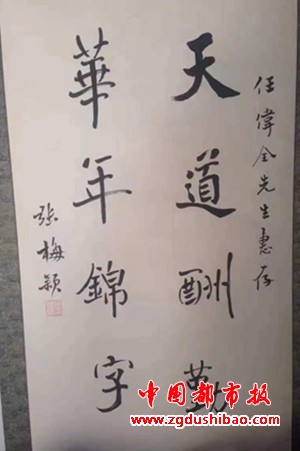 任偉全先生惠存
天道酬勤
華年錦字
張梅穎
中国都市报
www.zgdushibao.com